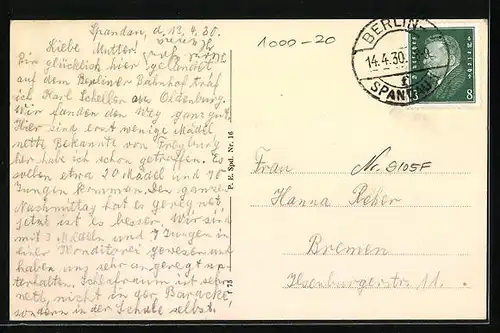 Spandau, d. 13.4.30.
Liebe Mutter!
Bin glücklich hier gelandet
auf dem Berliner Bahnhof traf
ich Karl Scheller aus Oldenburg.
Wir fanden den Weg ganz gut.
Hier sind erst wenige Mädel
nette Bekannte von Freyburg
her habe ich schon getroffen. Es
sollen etwa 20 Mädel und 70
Jungen kommen. Den ganzen
Nachmittag hat es geregnet
jetzt ist es besser. Wir sind
mit 3 Mädeln und 7 Jungen in
einer Konditorei gewesen und
haben uns sehr angeregt un-
terhalten. Schlafraum ist sehr
nett, nicht in der Baracke,
sondern in der Schule selbst.
P. E. Spd. Nr. 16
1000-20
BERLIN
14.4.30
SPANDAU
8
Nr. 8105F
Frau
Hanna
Bremen
Isenburgerstr. 11.